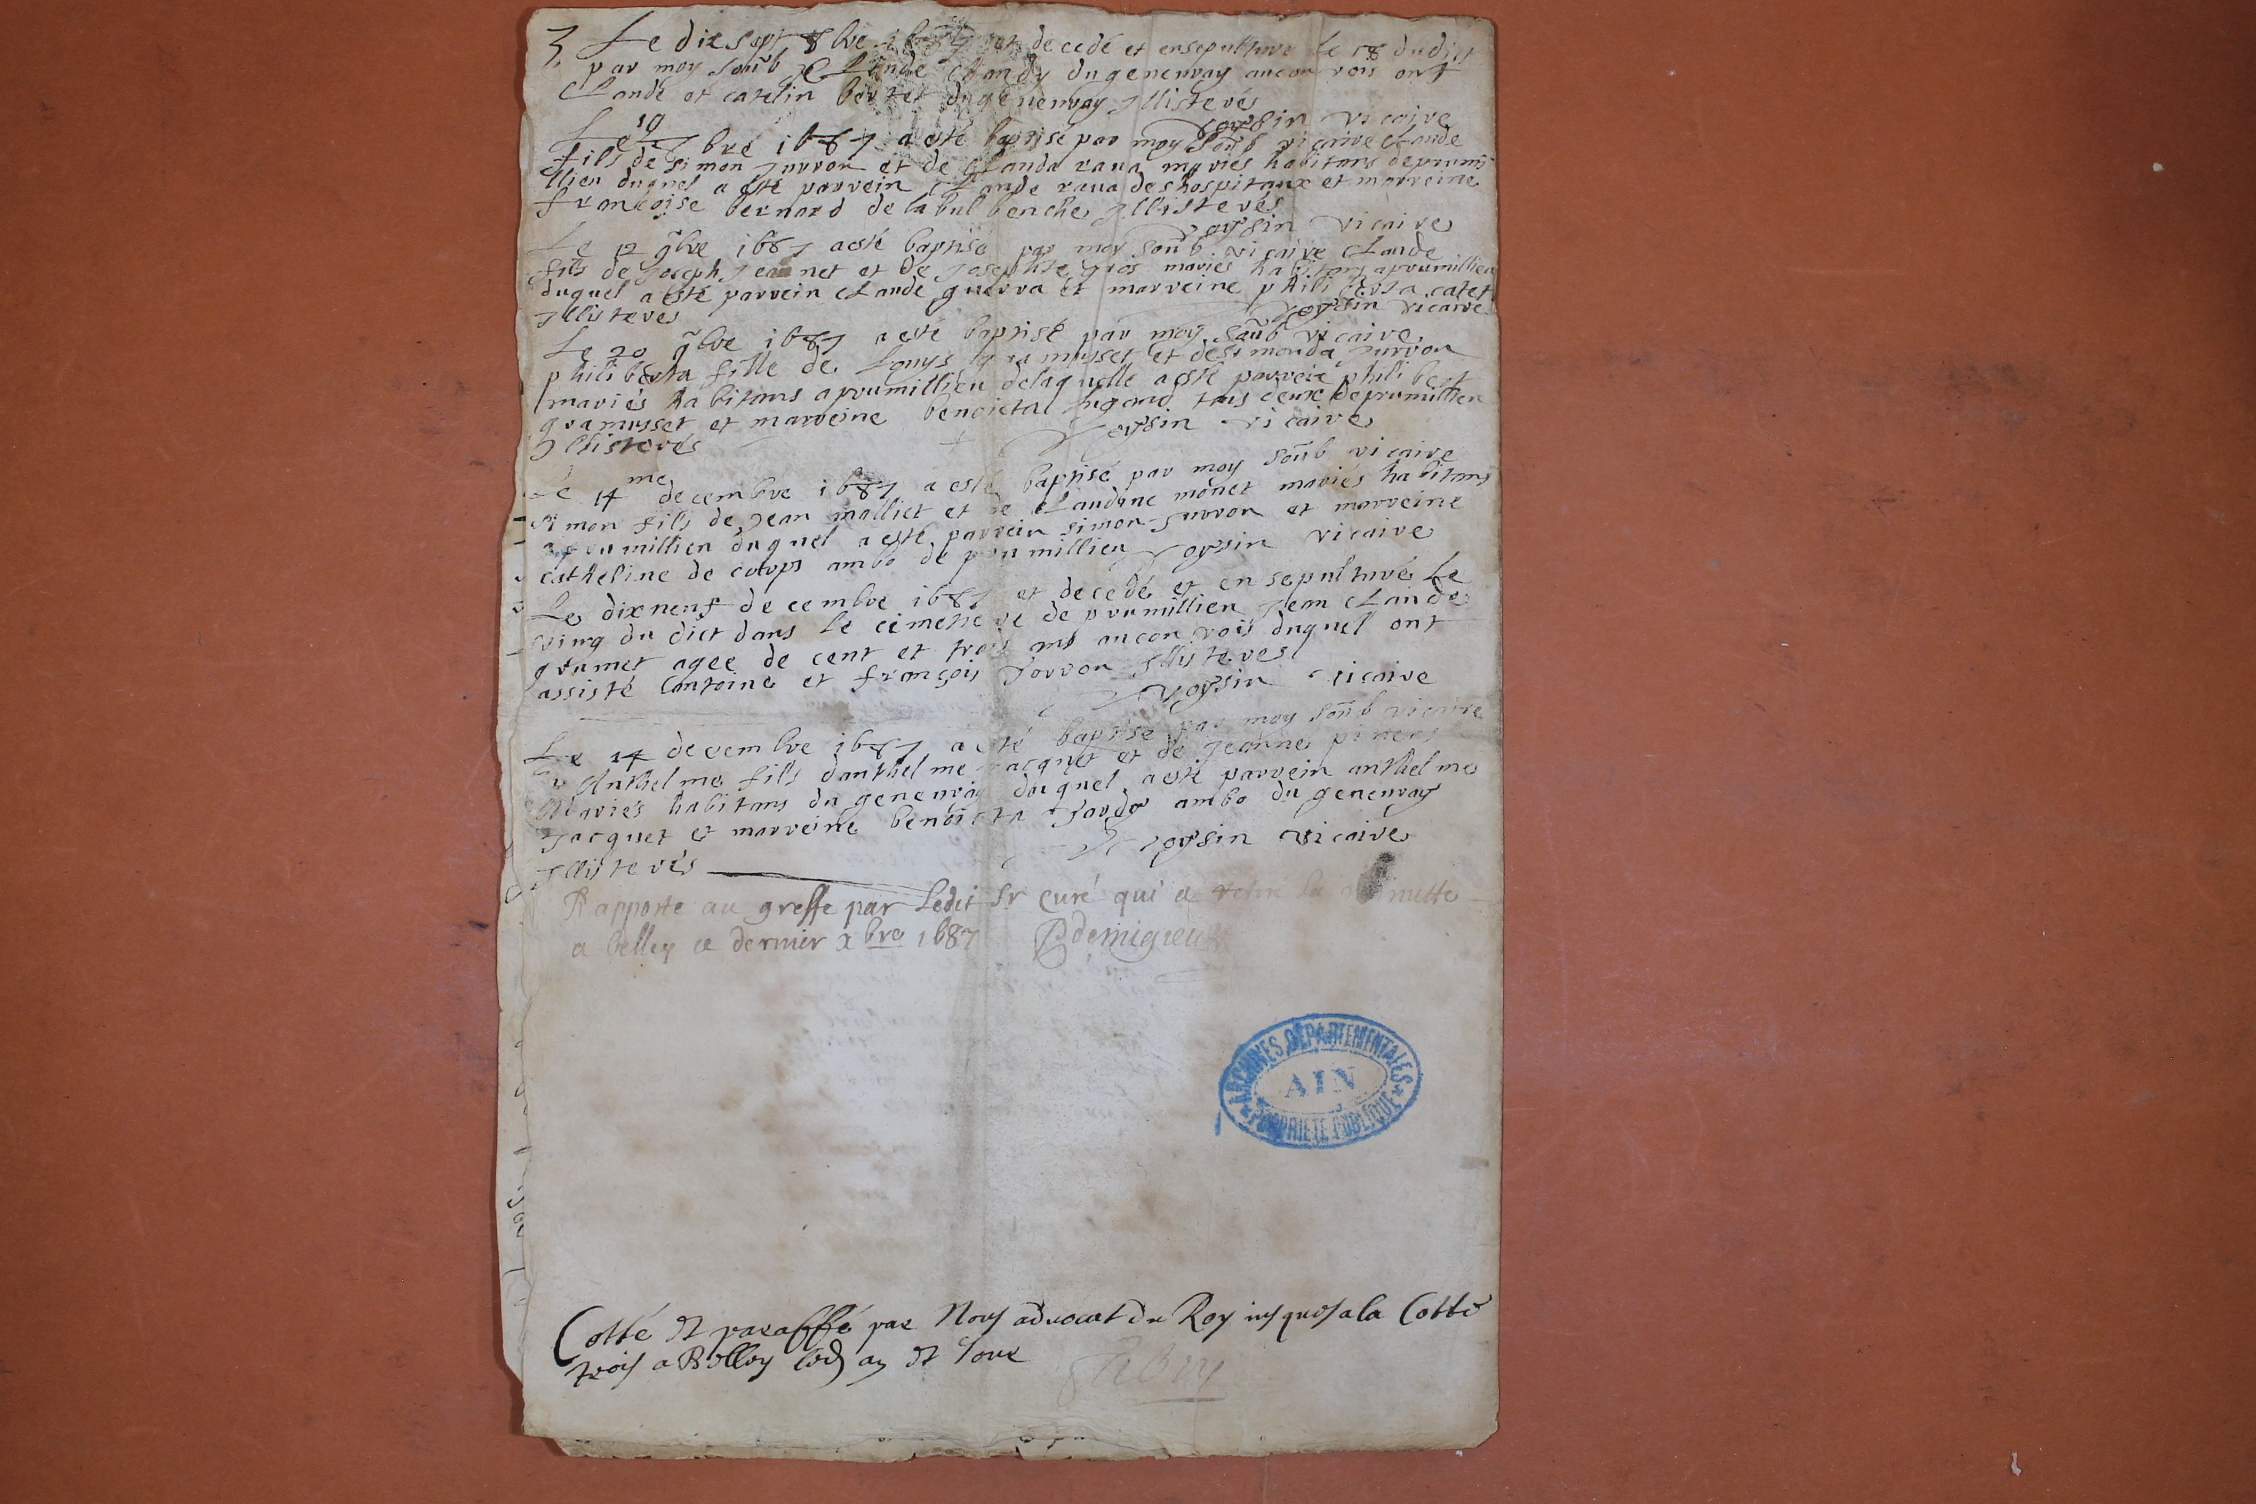 3 Le dixsept 8bre 1687 et decedé et ensepulturé Le 18 dudict
par moy soub Claude Clandy du genevray aucon vois ont
Claude et catelin bertet du genevray Illisterés
Voysin vicaire
Le 19 7bre 1687 a esté baptisé par moy soub vicaire Claude
fils de simon Jurron et de Clauda rava mariés habitans de prumi
llieu duquel a esté parrein Claude rava des hospitaux et marreine
francoise bernard de la bul benche Illisterés
Voysin vicaire
Le 12 9bre 1687 a esté baptisé par moy soub vicaire Claude
fils de Joseph Jeannet et de Josephte gros mariés habitans a prumillieu
duquel a esté parrein Claude guerra et marreine philiberta catet
Illisteres Voysin vicaire
Le 20 9bre 1687 a esté baptisé par moy soub vicaire
philiberta fille de Louys gramusset et de simonda Jurron
mariés habitans a prumillieu de laquelle a esté parrein philibert
gramusset et marreine benoieta Jugand tous deux de prumillieu
Illisterés Voysin vicaire
Le 14me decembre 1687 a esté baptisé par moy soub vicaire
simon fils de Jean malliet et de Claudine monet mariés habitans
a prumillieu duquel a esté parrein simon Jurron et marreine
catheline de corps ambo de prumillieu Voysin vicaire
Le dixneuf decembre 1687 et decedé et ensepulturé Le
vinq du dict dans le cimetiere de prumillieu Jean Claude
grumet agee de cent et trois ans aucon vois duquel ont
assisté Antoine et françois Jorron Illisteres
Voysin vicaire
Le 24 decembre 1687 a esté baptisé par moy soub vicaire
Anthelme fils danthelme Jacquet et de Jeanne piners
Mariés habitans du genevray duquel a esté parrein anthelme
Jacquet et marreine benoicta Jardy ambo du genevray
Illisterés Voysin vicaire
Rapporte au greffe par Ledit Sr curé qui a retire la minutte
a belley ce dernier xbre 1687 Demigieu
ARCHIVES DÉPARTEMENTALES
AIN
PROPRIÉTÉ PUBLIQUE
Cotté et paraffé par Nous advocat du Roy jusques a la Cotte
trois a Belley led an et Jour